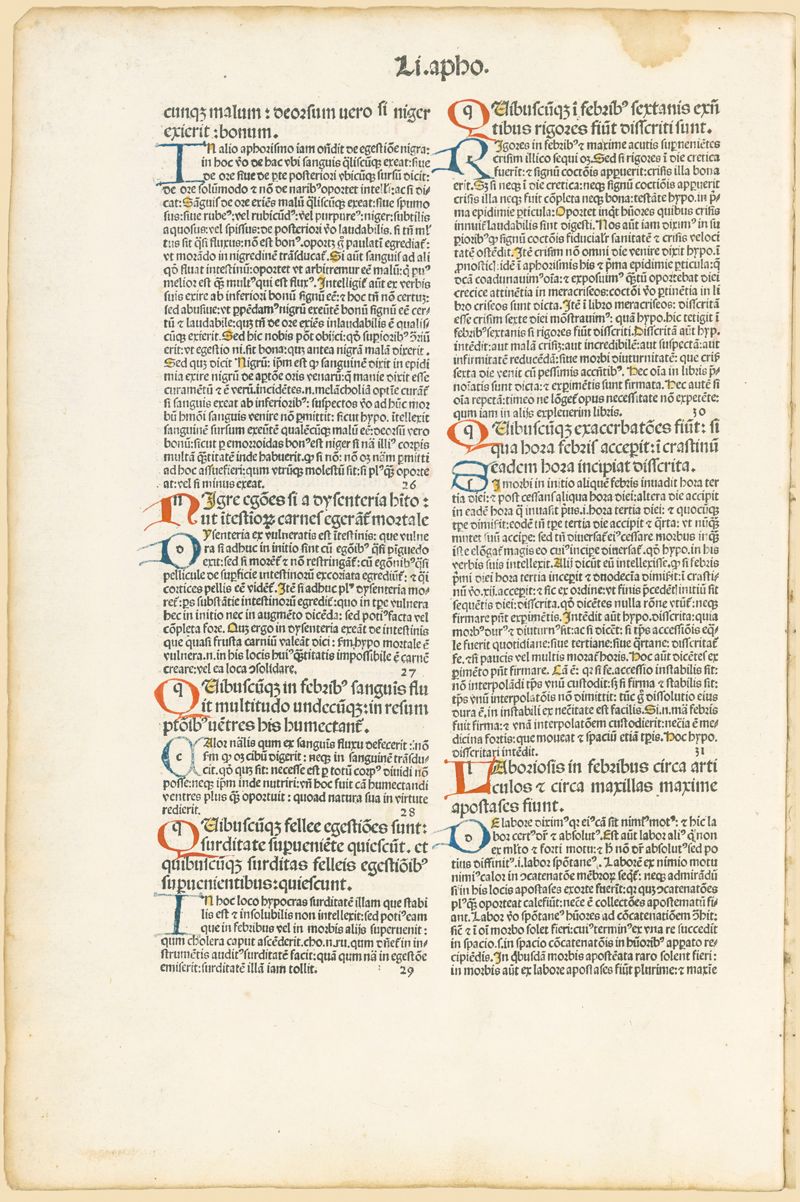 Li.apho.
cunqȝ malum: deorsum uero si niger
exierit :bonum.
IN alio aphorismo iam oñdit de egestiõe nigra:
in hoc v̄o de hac vbi sanguis q̃liscũqȝ exeat:siue
de ore siue de pte posteriori vbicũqȝ sursũ dicit:
de ore solũmodo ⁊ nõ de narib⁹ oportet intelł:ac si di-
cat:Sãguis de ore exiẽs malũ q̃liscũqȝ exeat:siue spumo
sus:siue rube⁹:vel rubicũd⁹:vel purpure⁹:niger:subtilis
aquosus:vel spissus:de posteriori v̄o laudabilis. si tñ ml̃
tus sit q̃si fluxus:nõ est bon⁹.oportȝ g̊ paulatĩ egrediat̃:
vt morãdo in nigredinẽ trãsducat̃.Si aũt sanguis ad ali
qđ fluat intestinũ:oportet vt arbitremur eẽ malũ:
melior est q̃ȝ mult⁹ qui est flux⁹.Intelligit̃ aũt ex verbis
suis exire ab inferiori bonũ signũ eẽ:⁊ hoc tñ nõ certuȝ:
sed abusiue:vt ꝓpẽdam⁹ nigrũ exeũtẽ bonũ signũ eẽ cer-
tũ ⁊ laudabile:quȝ tñ de ore exiẽs inlaudabilis ẽ qualis
cũqȝ exierit.Sed hic nobis põt obijci:qđ supiorib⁹
erit:vt egestio ni.sit bona:quȝ antea nigrã malã dixerit.
Sed quȝ dicit Nigrũ: ip̃m est ꝙ sanguinẽ dixit in epidi
mia exire nigrũ de aptõe oris venarũ:q̃ manie dixit esse
curamẽtũ ⁊ ẽ verũ.incidẽtes.n.melãcholiã optie curãt̃
si sanguis exeat ab inferiorib⁹:suspectos v̄o ad hũc mor
bũ hm̃õi sanguis venire nõ pmittit: sicut hypo. itellexit
sanguinẽ sursum exeũtẽ qualẽcũqȝ malũ eẽ:deorsũ vero
bonũ:sicut p emorroidas bon⁹ est niger si nã illi⁹ corpis
multã q̃titatẽ inde habuerit.ꝙ si nõ: nõ oȝ nãm pmitti
ad hoc assuefieri:qum vtrũqȝ molestũ sit:si pl⁹ q̃ȝ oporte
at:vel si minus exeat. 26
NIgre egões si a dysenteria hĩto:
ut ĩtestioꝝ carnes egerãt̃ mortale
DYsenteria ex vulneratis est ĩtestinis: que vulne
ra si adhuc in initio sint cũ egõib⁹ q̃si piguedo
exit:sed si morẽt̃ ⁊ nõ restringãt̃:cũ egõnib⁹ q̃si
pellicule de supficie intestinorũ excoriata egrediũt̃: ⁊ q̃i
cortices pellis eẽ vidẽt̃.Itẽ si adhuc pl⁹ dysenteria mo-
ret̃:ps substãtie intestinorũ egredit̃:quo in tpe vulnera
hec in initio nec in augmẽto dicẽda: sed poti⁹ facta vel
cõpleta fore. Quȝ ergo in dysenteria exeãt de intestinis
que quasi frusta carniũ valeãt dici: fm̃ hypo mortale ẽ
vulnera.n.in his locis hui⁹ q̃titatis impossibile ẽ carnẽ
creare:vel ea loca ɔsolidare. 27
QUibuscũqȝ in febrib⁹ sanguis flu
it multitudo undecũqȝ:in resum
ptõib⁹ uẽtres his humectant̃.
CAlor nãlis qum ex sanguis fluxu defecerit :nõ
fm̃ ꝙ oȝ cibũ digerit: neqȝ in sanguinẽ trãsdu-
cit.qđ quȝ sit: necesse est p totũ corp⁹ diuidi nõ
posse:neqȝ ip̃m inde nutriri:vñ hoc fuit cã humectandi
ventres plus q̃ȝ oportuit: quoad natura sua in virtute
redierit. 28
QUibuscũqȝ fellee egestiões sunt:
surditate supueniẽte quiescũt. et
quibuscũqȝ surditas felleis egestiõib⁹
supuenientibus:quiescunt.
IN hoc loco hypocras surditatẽ illam que stabi
lis est ⁊ insolubilis non intellexit:sed poti⁹ eam
que in febribus vel in morbis alijs superuenit:
qum cholera caput ascẽderit.cho.n.ru.qum dñet̃ in in-
strumẽtis audit⁹ surditatẽ facit:quã qum nã in egestõe
emiserit:surditatẽ illã iam tollit. 29
QUibuscũqȝ ĩ febrib⁹ sextanis exñ
tibus rigores fiũt discriti sunt.
RIgores in febrib⁹ ⁊ maxime acutis supueniẽtes
crisim illico sequi oȝ.Sed si rigores ĩ die cretica
fuerit: ⁊ signũ coctõis appuerit:crisis illa bona
erit.Sȝ si neqȝ ĩ die cretica:neqȝ signũ coctiõis appuerit
crisis illa neqȝ fuit cõpleta neqȝ bona:testãte hypo.in p̃-
ma epidimie pticula:Oportet inq̃t hũores quibus crisis
innuit̃ laudabilis sint digesti.Nos aũt iam dixim⁹ in su
piorib⁹ ꝙ signũ coctõis fiducialr̃ sanitatẽ ⁊ crisis veloci
tatẽ ostẽdit.Itẽ crisim nõ omni die venire dixit hypo.ĩ
ꝓnostic:idẽ ĩ aphorismis his ⁊ p̃ma epidimie pticula:q̃
dcã coadunauim⁹ oĩa: ⁊ exposuim⁹ q̃tũ oportebat diei
crecice attinẽtia in meracriseos:coctõi v̄o ptinẽtia in li
bro criseos sunt dicta.Itẽ ĩ libro meracriseos: discritã
esse crisim sexte diei mõstrauim⁹: quã hypo.hic tetigit ĩ
febrib⁹ sextanis si rigores fiũt discriti.Discritã aũt hyp.
intẽdit:aut malã crisiȝ:aut incredibilẽ:aut suspectã:aut
infirmitatẽ reducẽdã:siue morbi diuturnitatẽ: que crif̃
sexta die venit cũ pessimis accñtib⁹. Hec oĩa in libris p̃-
noĩatis sunt dicta:⁊ expimẽtis sunt firmata.Hec autẽ si
oĩa repetã:timeo ne lõget̃ opus necessitate nõ expetẽte:
qum iam in alijs expleuerim libris. 30
QUibuscũqȝ exacerbatões fiũt: si
qua hora febris accepit:ĩ crastinũ
eadem hora incipiat discrita.
SI morbi in initio aliquẽ febris inuadit hora ter
tia diei:⁊ post cessans aliqua hora diei:altera die accipit
in eadẽ hora q̃ inuasit pĩus.i.hora tertia diei: ⁊ quocũqȝ
tpe dimisit:eodẽ tñ tpe tertia die accipit ⁊ q̃rta: vt nũq̃ȝ
mutet suũ accipe: sed tñ diuersat̃ ei⁹ cessare morbus
iste elõgat̃ magis eo cui⁹ incipe diuersat̃.qđ hypo.in his
verbis suis intellexit.Alij dicũt eũ intellexisse.ꝙ si febris
p̃mi diei hora tertia incepit ⁊ duodecĩa dimisit:ĩ crasti-
nũ v̄o.xij.accepit:⁊ sic ex ordine:vt finis pcedẽt⁹ initiũ sit
sequẽtis diei:discrita.qđ dicẽtes nulla rõne vtũt̃:neqȝ
firmare pñt expimẽtis.Intẽdit aũt hypo.discrita:quia
morb⁹ dur⁹ ⁊ diuturn⁹ sit:ac si dicẽt: si tps accessiõis eq̃-
le fuerit quotidiane:siue tertiane:siue q̃rtane: discritat̃
fe.⁊ si paucis vel multis morat̃ horis.Hoc aũt dicẽtes ex
pimẽto pñt firmare. Cã ẽ: qȝ si fe.accessio instabilis sit:
nõ interpolãdi tps vnũ custodit:sȝ si firma ⁊ stabilis sit:
tps vnũ interpolatõis nõ dimittit: tũc g̊ dissolutio eius
dura ẽ.in instabili ex necitate est facilis.Si.n.mã febris
fuit firma:⁊ vnã interpolatõem custodierit:necia ẽ me-
dicina fortis:que moueat ⁊ spaciũ etiã tpis.Hoc hypo.
discritari intẽdit. 31
LAboriosis in febribus circa arti
culos ⁊ circa maxillas maxime
apostases fiunt.
DE labore dixim⁹:qȝ ei⁹ cã sit nimi⁹ mot⁹: ⁊ hic la
bor cert⁹ dr̃ ⁊ absolut⁹.Est aũt labor ali⁹ q̃ non
ex ml̃to ⁊ forti motu: ⁊ h̃ nõ dr̃ absolut⁹ sed po
tius diffinit⁹.i.labor spõtane⁹. Laborẽ ex nimio motu
nimi⁹ calor in ɔcatenatõe mẽbroꝝ seq̃t̃: neqȝ admirãdũ
si in his locis apostases exorte fuerit:qȝ quȝ ɔcatenatões
pl⁹ q̃ȝ oporteat calefiũt:nece ẽ collectões apostematũ fi-
ant.Labor v̄o spõtane⁹ hũores ad cõcatenatiõem
fic̃ ⁊ ĩ oĩ morbo solet fieri:cui⁹ termin⁹ ex vna re succedit
in spacio.s.in spacio cõcatenatõis in hũorib⁹ appato re-
cipiẽdis.In q̃busdã morbis apostẽata raro solent fieri:
in morbis aũt ex labore apostases fiũt plurime: ⁊ maxĩe